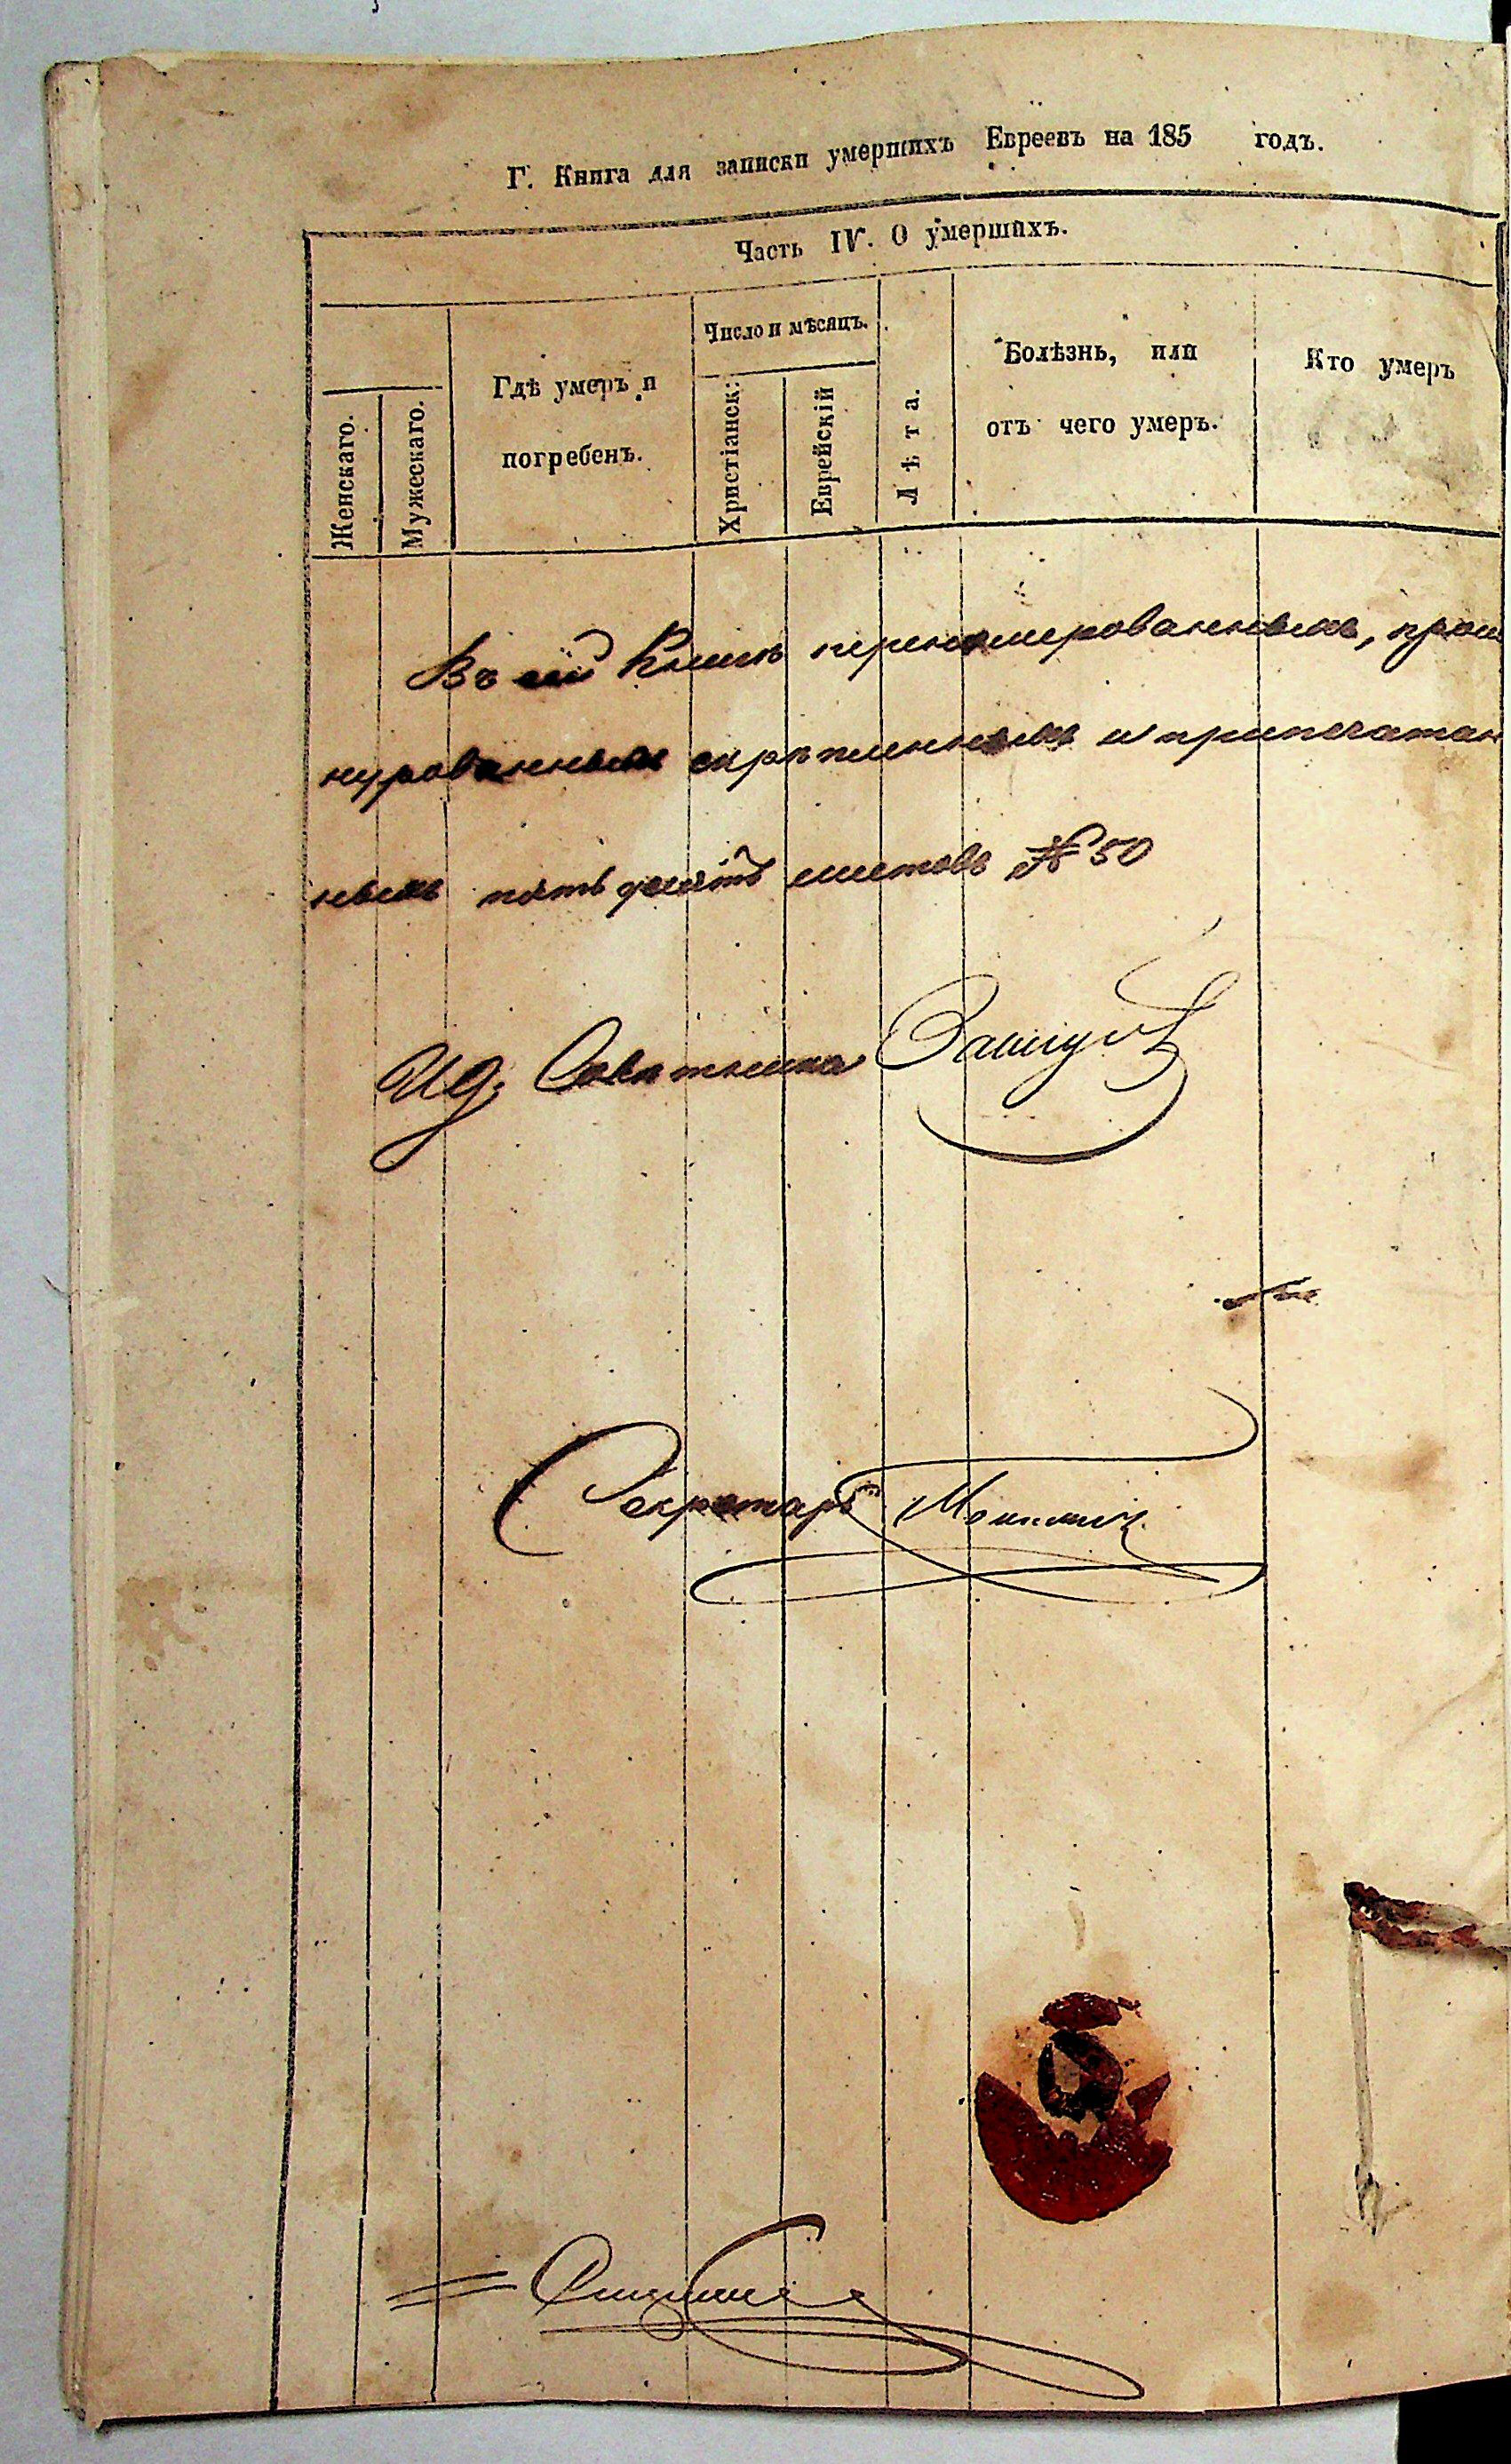 Г. Книга для записки умершихъ Евреевъ на 185 годъ.
Часть IV. О умершихъ.
Женскаго.
Мужескаго.
Гдѣ умеръ и
погребенъ.
Число и мѣсяцъ.
Христіанск:
Еврейскій
Лѣта.
Болѣзнь, или
отъ чего умеръ.
Кто умеръ
Въ сей Книгѣ перенумерованныхъ, прош
нурованныхъ скрѣпленныхъ и припечатан
ныхъ пятьдесятъ листовъ № 50
И д. Совѣтника
Секретарь